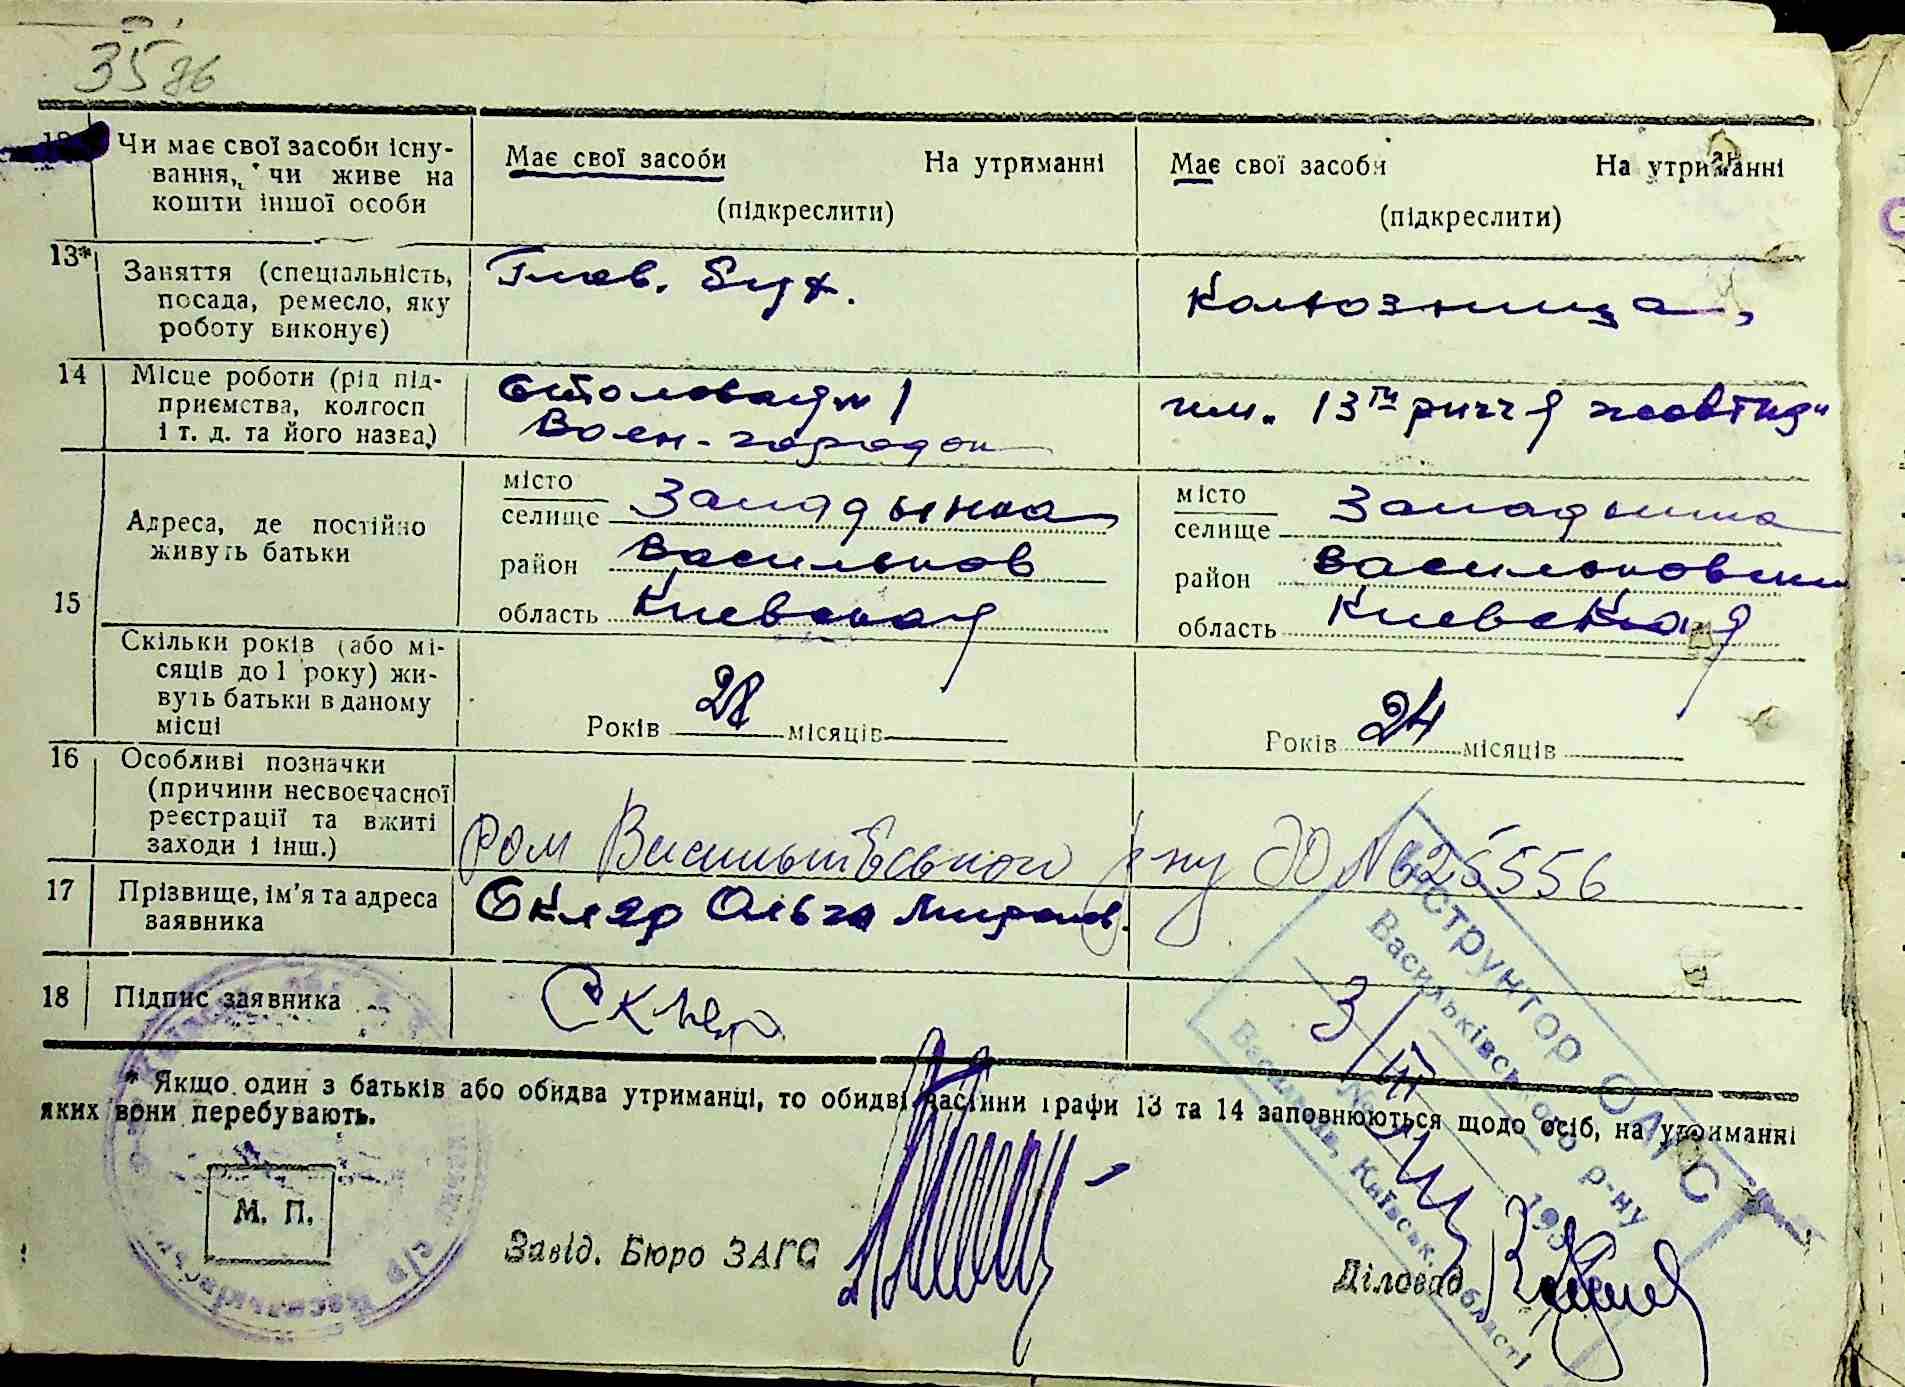 35 76
12
Чи має свої засоби існу-
вання, чи живе на
кошти іншої особи
Має свої засоби На утриманні
(підкреслити)
Має свої засоби На утриманні
(підкреслити)
13*
Заняття (спеціальність,
посада, ремесло, яку
роботу виконує)
Глав. бух.
Колхозница,
14
Місце роботи (рід під-
приємства, колгосп
і т. д. та його назва)
Столовая № 1
Воен-городок
им. 13ти риччя жовтня"
15
Адреса, де постійно
живуть батьки
місто
селище Западынка
район Васильков
область Киевская
місто
селище Западынка
район Васильковски
область Киевская
Скільки років (або мі-
сяців до 1 року) жи-
вуть батьки в даному
місці
Років 28 місяців
Років 24 місяців
16
Особливі позначки
(причини несвоєчасної
реєстрації та вжиті
заходи і інш.)
Васильківського р-ну ЭЮ № 625556
17
Прізвище, ім'я та адреса
заявника
Скляр Ольга Миронов.
18
Підпис заявника
Скляр
* Якщо один з батьків або обидва утриманці, то обидві частини графи 13 та 14 заповнюються щодо осіб, на утриманні
яких вони перебувають.
М. П.
Завід. Бюро ЗАГС
Діловод
Інструктор ОАГС
Васильківського р-ну
3/III 195
Васильків, Київськ. області